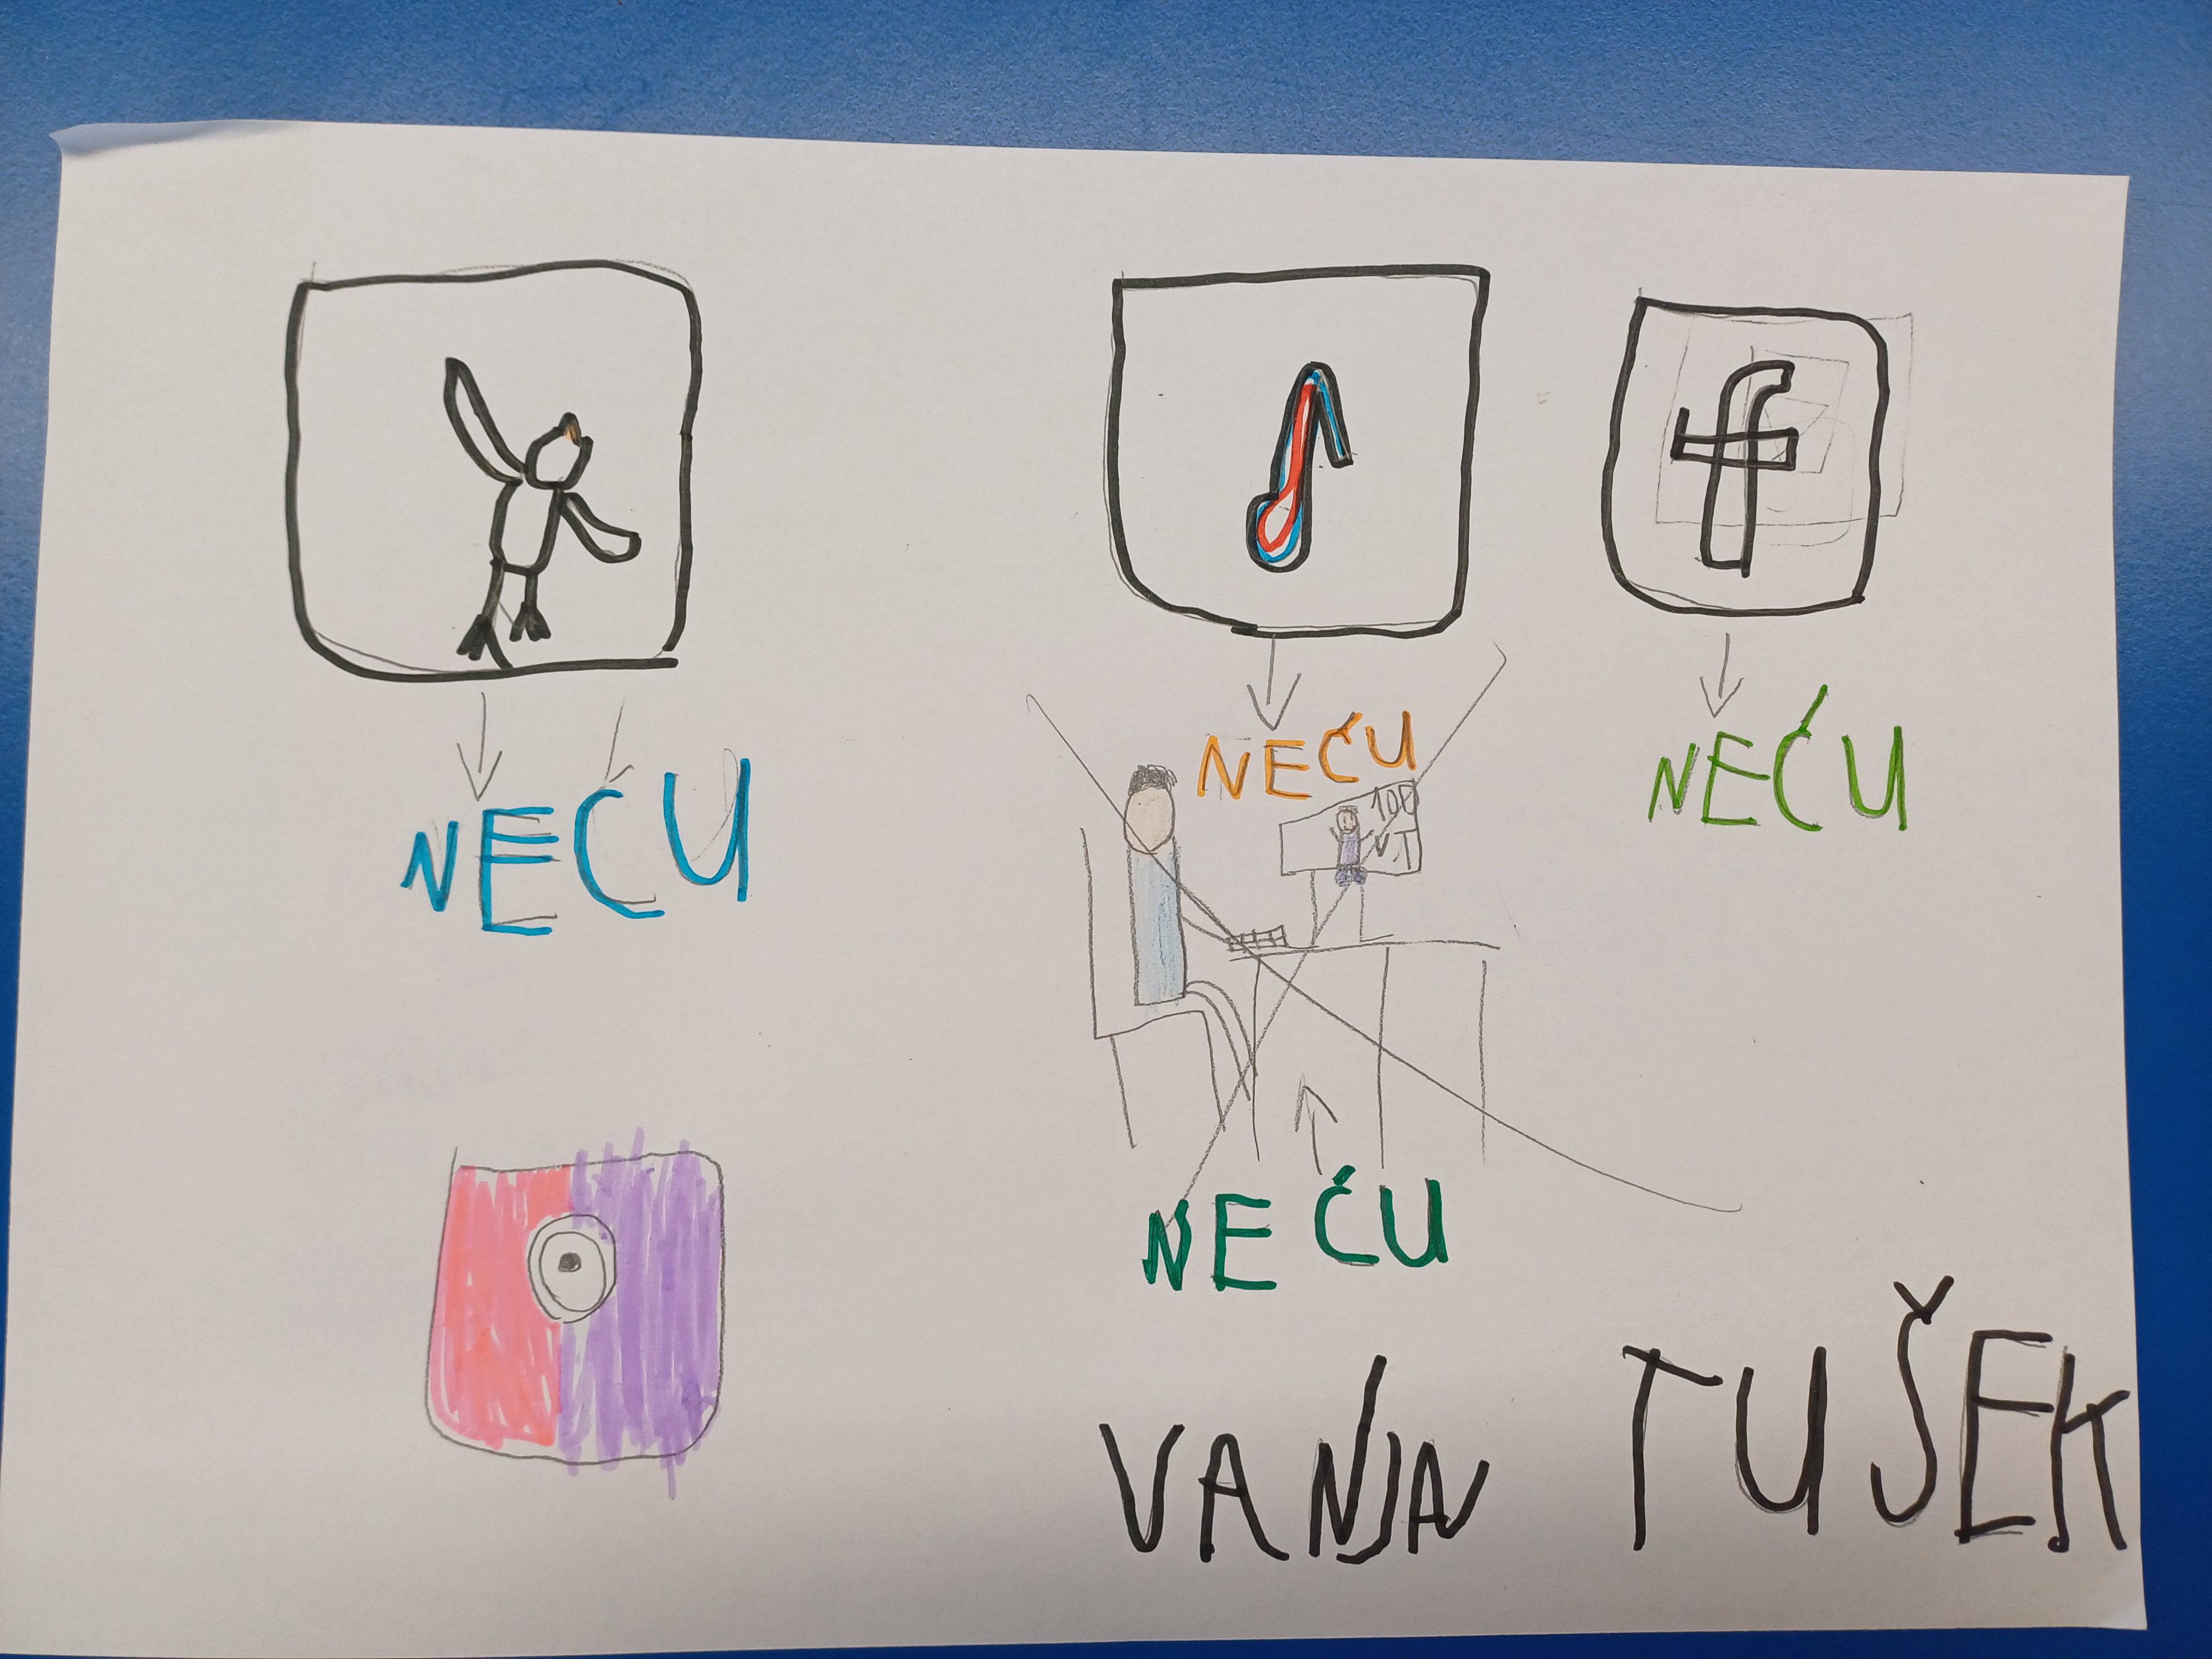 f
NEĆU
NEĆU
NEĆU
100
NEĆU
VANJA
TUŠEK